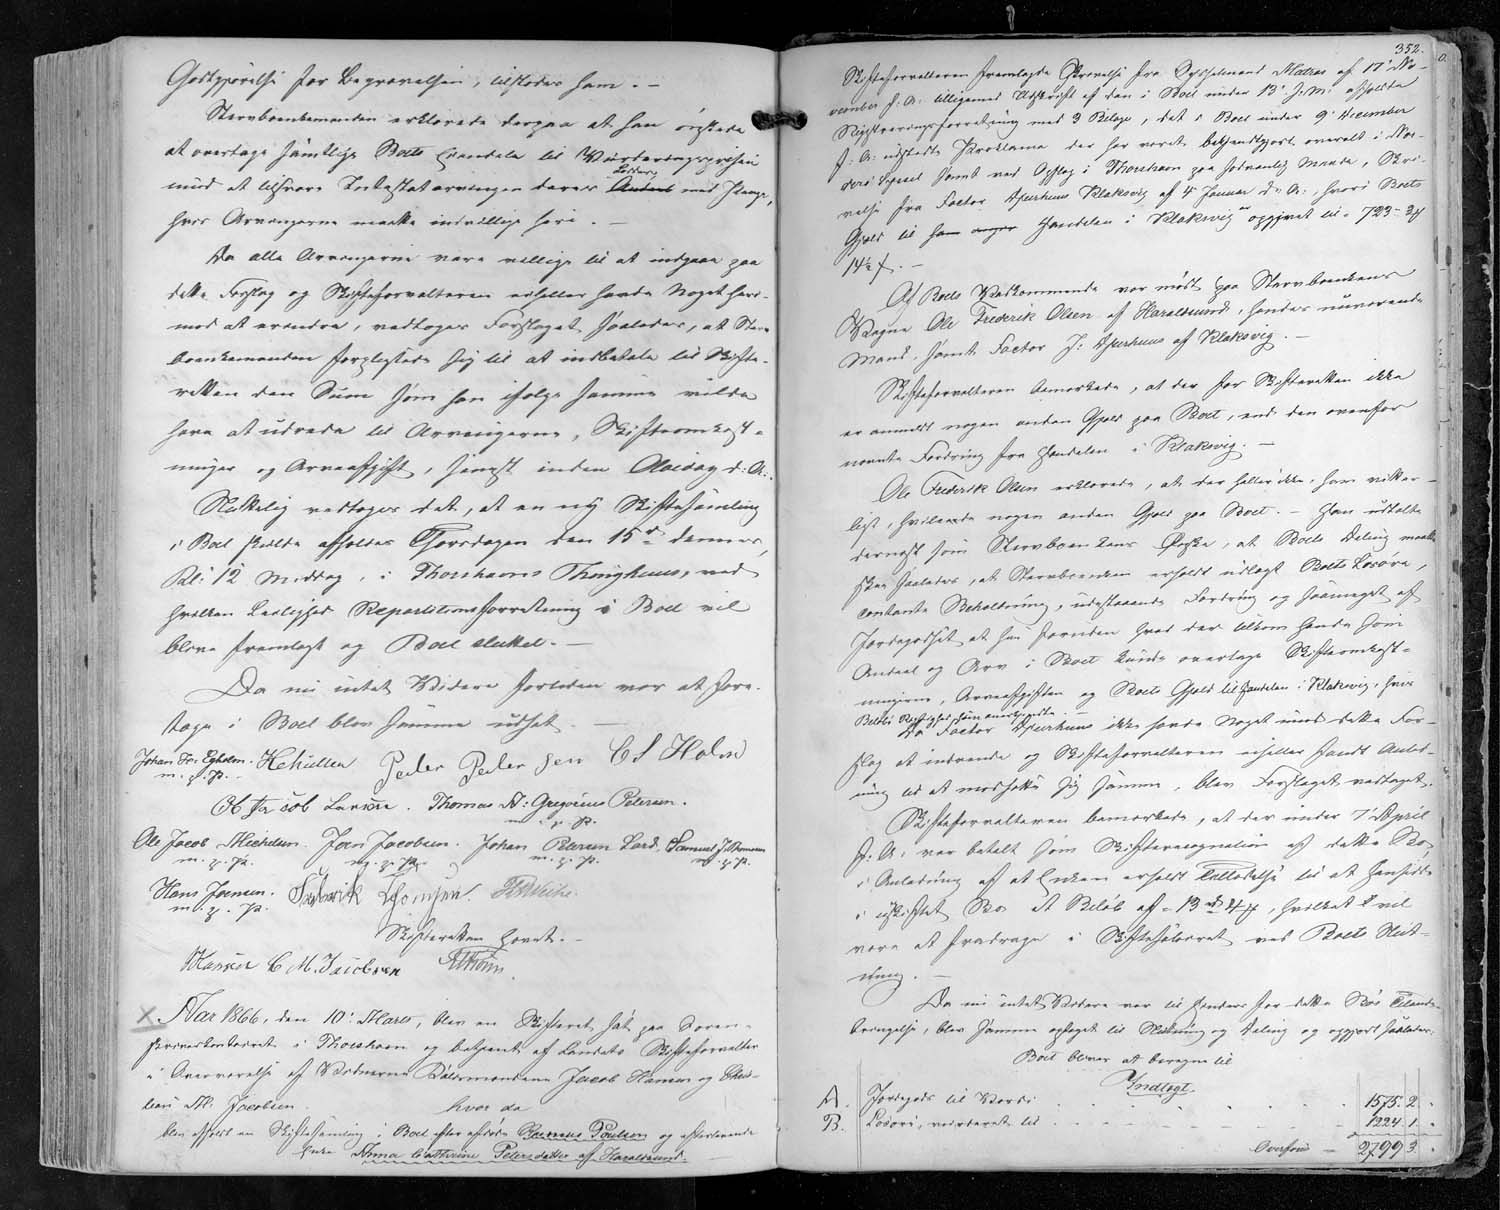 Godtgjørelse for Begravelsen, tilstodes ham. —
Stervboenkemanden erklærede derpaa at han ønskede
at overtage samtlige Boets Eiendele til Vurderingsprisen
mod at tilsvare Intestatarvingerne deres Lodder med Penge,
hvis Arvingerne maatte indvillige heri. —
Da alle Arvingerne vare villige til at indgaae paa
dette Forslag og Skifteforvalteren eiheller havde Noget heri-
mod at erindre, vedtoges Forslaget saaledes, at Sterv-
boenkemanden forpligtede sig til at indbetale til Skifte-
retten den Sum som han ifølge samme vilde
have at udrede til Arvingerne, Skifteomkost-
ninger og Arveafgift, senest inden Olaidag d: A:.
Endelig vedtoges det, at en ny Skiftesamling
i Boet skulde afholdes Thorsdagen den 15de dennes,
Kl: 12 Middag, i Thorshavns Thinghuus, ved
hvilken Leilighed Repartitionsforretning i Boet vil
blive fremlagt og Boet sluttet. —
Da nu intet Videre forløben var at fore-
tage i Boet blev samme udsat. —
Johan Fr. Egholm. HChullen Peder Pedersen C S Holm
m. f. P.
Ob Jacob Larsen. Thomas A: Gregorius Petersen.
m. p. P.
Ole Jacob Michelsen. Joen Jacobsen. Johan Petersen Samuel J.Thomsen
m. p. P. m. p. P. m. p. P. m. p. P.
Hans Joensen. Frederik Thomsen.
m. p. P.
Skifteretten hævet. —
JHansen C M. Jacobsen HTrøm.
× Aar 1866, den 10' Marts, blev en Skifteret sat paa Soren-
skriverkontoret i Thorshavn og betjent af Landets Skifteforvalter
i Overværelse af Vidnerne Jacob Hansen og Chris-
tian M. Jacobsen
hvor da
blev afholdt en Skiftesamling i Boet efter afdøde Rasmus Poulsen og efterlevende
Enke Anna Cathrine Petersdatter af Haraldssund.
352.
Skifteforvalteren fremlagde Skrivelse fra Sysselmand Matras af 17' No-
vember f. A. tilligemed Udskrift af den i Boet under 13' s. M. afholdte
Registreringsforretning med 3 Bilage, det i Boet under 9' December
f: A: udstedte Proklama der har været bekjendtgjort overalt i Nor-
derø Syssel samt ved Opslag i Thorshavn paa sædvanlig Maade, Skri-
velse fra Factor Djurhuus Klaksvig af 4' Januar d. A., hvori Boets
Gjæld til Handelen i Klaksvig er opgivet til 723 - 34
14½ f. —
Af Boets Vedkommende var mødt paa Stervboenkens
Vegne Ole Frederik Olsen af Haraldssund, hendes nuværende
Mand, samt Factor J: Djurhuus af Klaksvig. —
Skifteforvalteren bemærkede, at der for Skifteretten ikke
er anmeldt nogen anden Gjæld paa Boet, end den ovenfor
nævnte Fordring fra Handelen i Klaksvig. —
Ole Frederik Olsen erklærede, at der heller ikke, ham vitter-
ligt, hvilede nogen anden Gjæld paa Boet. — Han udtalte
dernæst som Stervboenkens Ønske, at Boets Deling maatte
skee saaledes, at Stervboenken erholdt udlagt Boets Løsøre,
contante Beholdning, udestaaende Fordring og saameget af
Jordegodset at hun foruden hvad der tilkom hende som
Andeel og Arv i Boet kunde overtage Skifteomkost-
ningerne, Arveafgiften og Boets Gjæld til Handelen i Klaksvig, hvis
Beløbs Rigtighed han anerkjendte. —
Da Factor Djurhuus ikke havde Noget imod dette For-
slag at indvende og Skifteforvalteren eiheller fandt Anled-
ning til at modsætte sig samme, blev Forslaget vedtaget.
Skifteforvalteren bemærkede, at der under 7' April
f. A. var betalt som Skifterecognition af dette Bo
i Anledning af at Enken erholdt Tilladelse til at hensidde
i uskiftet Bo et Beløb af 13 rd 4 f, hvilket vil
være at fradrage i Skiftesalairet ved Boets Slut-
ning. —
Da nu intet Videre var til Hinder for dette Boes Tilende-
bringelse, blev samme optaget til Slutning og Deling og opgjort saaledes,
Boet bliver at beregne til
Indtægt.
A. Jordegods til Værdi . . . . . 1575. 2 .
B. Løsøre, vurderet til . . . . . 1224 1 .
Overføres — 2799 3 .